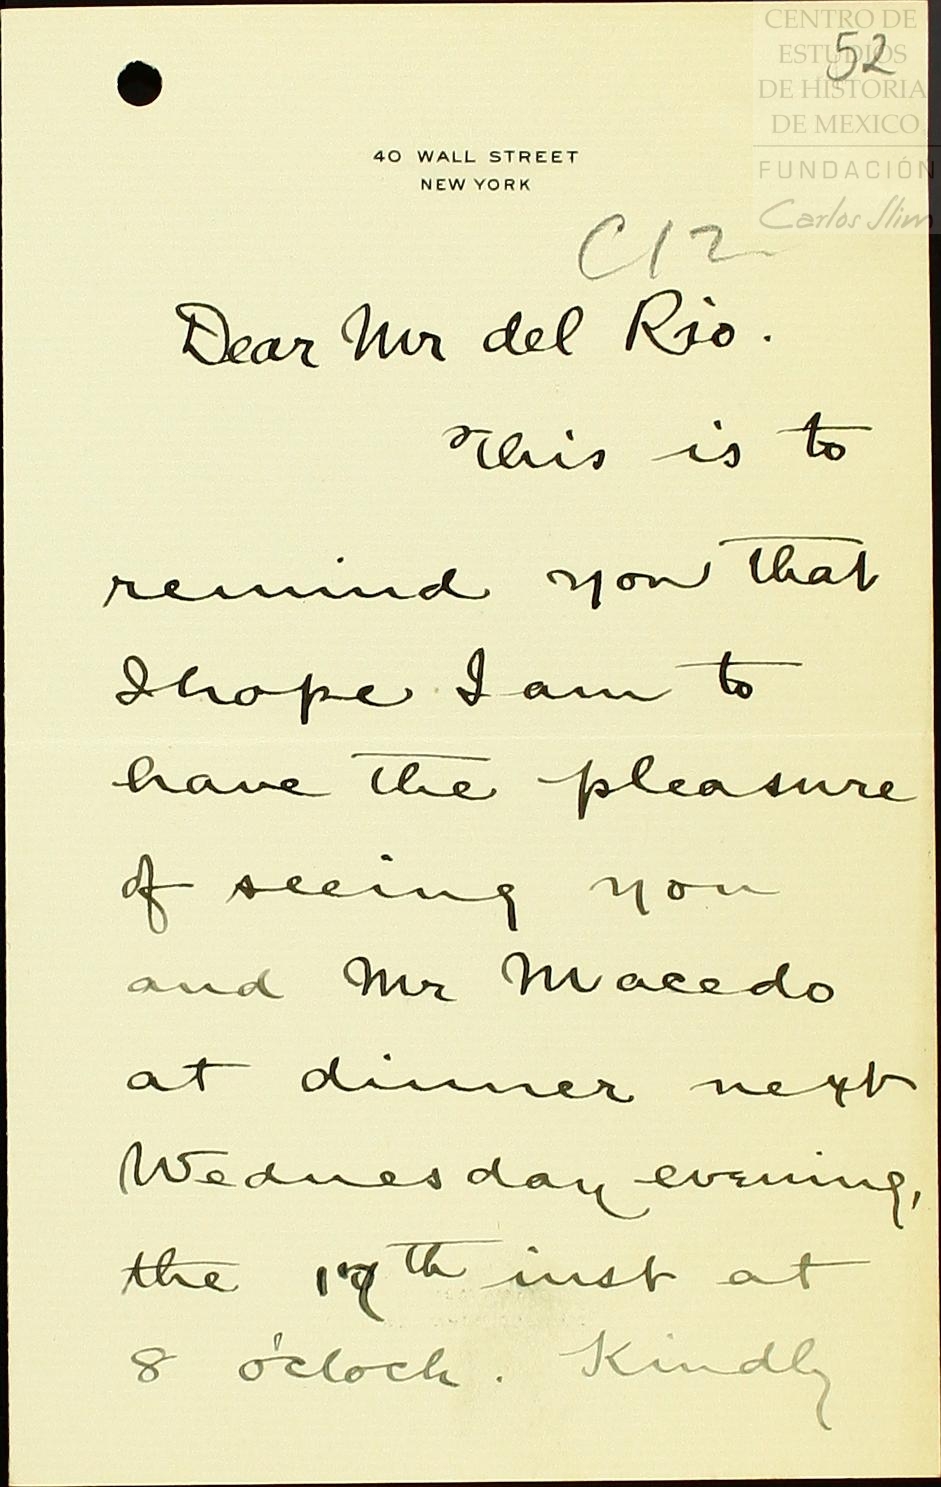 CENTRO DE
ESTUDIOS
DE HISTORIA
DE MEXICO
FUNDACIÓN
Carlos Slim
52
40 WALL STREET
NEW YORK
C12
Dear Mr del Rio.
This is to
remind you that
I hope I am to
have the pleasure
of seeing you
and Mr Macedo
at dinner next
Wednesday evening,
the 17th inst at
8 o'clock. Kindly